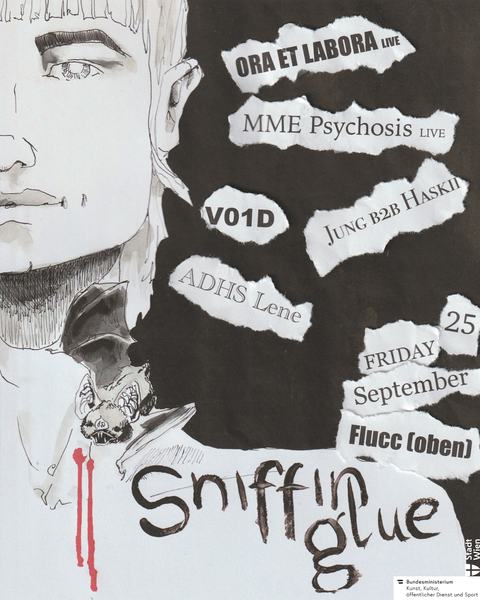 ORA ET LABORA LIVE
MME Psychosis LIVE
V01D
JUNG B2B HASKII
ADHS Lene
25
FRIDAY
September
Flucc (oben)
Sniffin
glue
Stadt
Wien
Bundesministerium
Kunst, Kultur,
öffentlicher Dienst und Sport